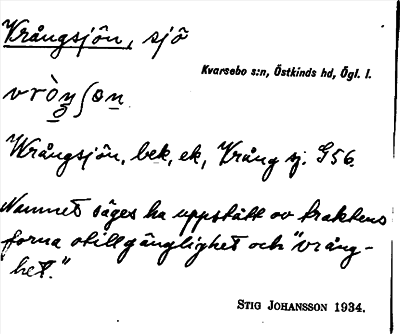 Vrångsjön, sjö
Kvarsebo s:n, Östkinds hd, Ögl. l.
vròŋʃɵn
Wrångsjön, bek, ek, Vrång sj. G56.
Namnet säges ha uppstått av traktens
forna otillgänglighet och "vrång-
het."
STIG JOHANSSON 1934.